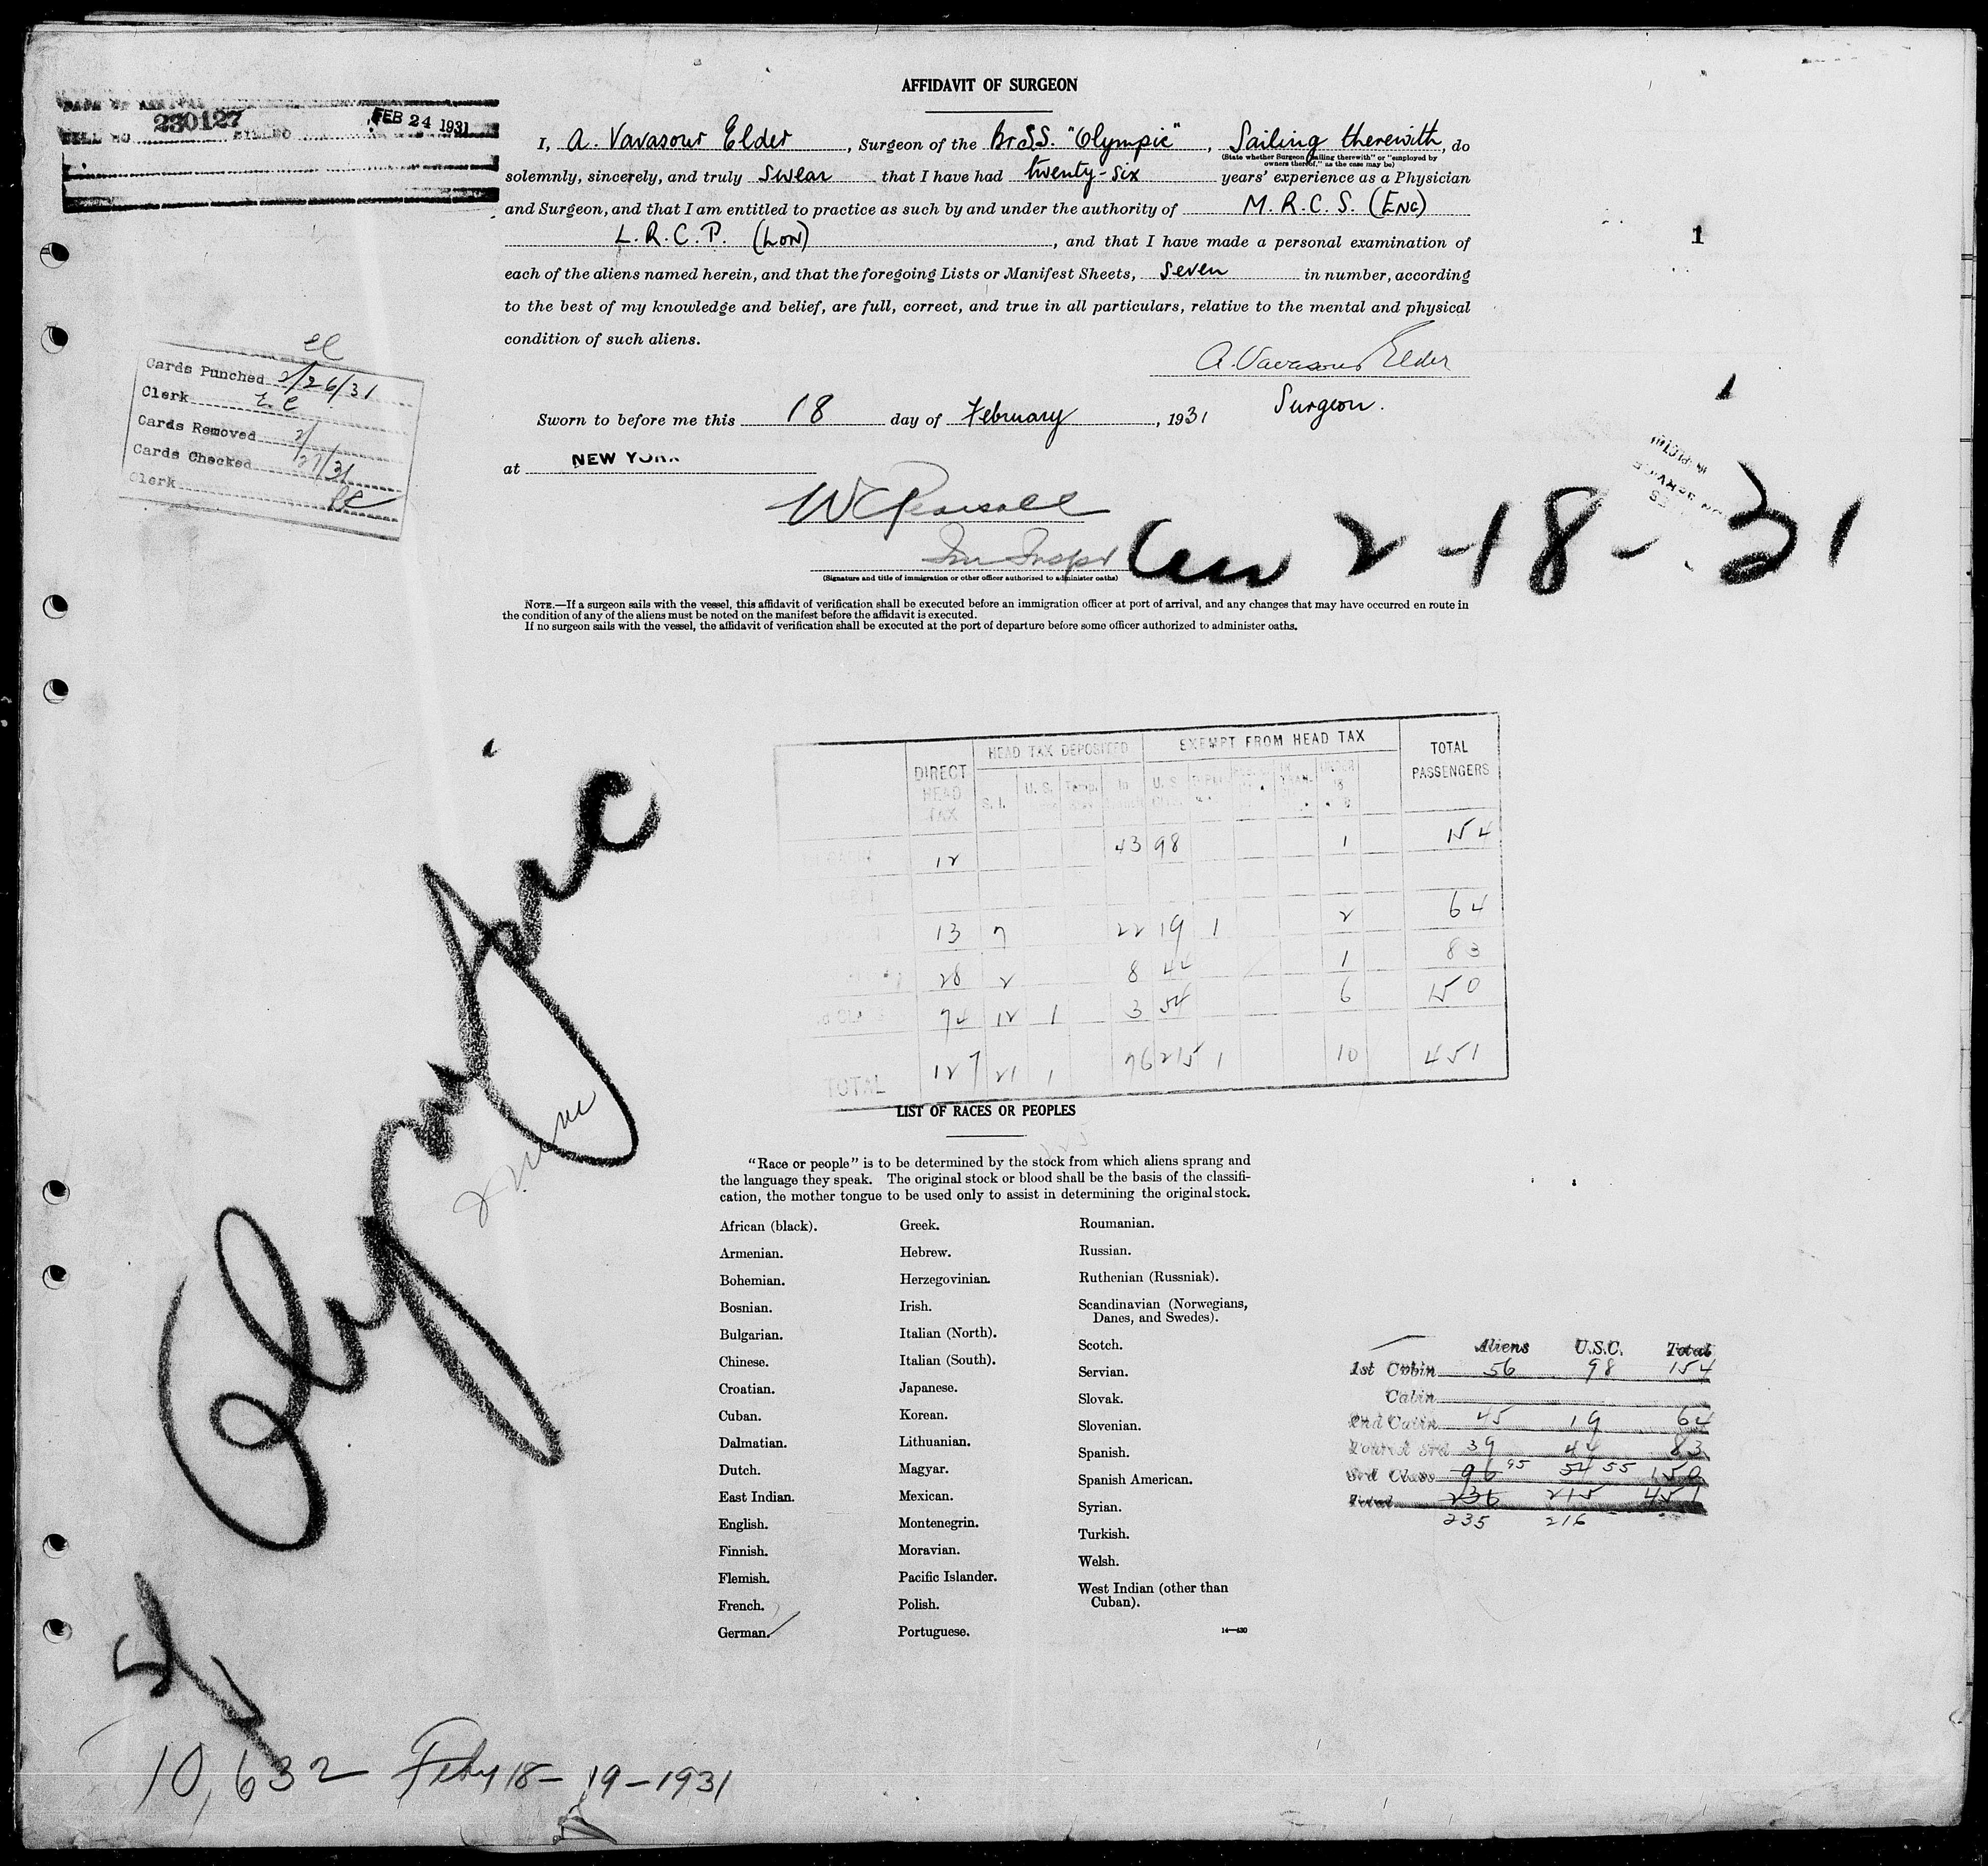 AFFIDAVIT OF SURGEON
230127 FEB 24 1931
I, A. Vavasour Elder, Surgeon of the Br.S.S. "Olympic", Sailing therewith, do
(State whether Surgeon "sailing therewith" or "employed by
owners thereof," as the case may be)
solemnly, sincerely, and truly swear that I have had twenty-six years' experience as a Physician
and Surgeon, and that I am entitled to practice as such by and under the authority of M.R.C.S. (ENG)
L.R.C.P. (LON), and that I have made a personal examination of
1
each of the aliens named herein, and that the foregoing Lists or Manifest Sheets, seven in number, according
to the best of my knowledge and belief, are full, correct, and true in all particulars, relative to the mental and physical
condition of such aliens.
A. Vavasour Elder
Surgeon.
Cards Punched 2/26/31
Clerk
Cards Removed 2/
Cards Checked 27/31
Clerk
Sworn to before me this 18 day of February, 1931
at NEW YORK
2-18-31
(Signature and title of immigration or other officer authorized to administer oaths)
NOTE.—If a surgeon sails with the vessel, this affidavit of verification shall be executed before an immigration officer at port of arrival, and any changes that may have occurred en route in
the condition of any of the aliens must be noted on the manifest before the affidavit is executed.
If no surgeon sails with the vessel, the affidavit of verification shall be executed at the port of departure before some officer authorized to administer oaths.
DIRECT HEAD TAX HEAD TAX DEPOSITED EXEMPT FROM HEAD TAX TOTAL PASSENGERS
S. I. U. S. Temp. In U. S. UNDER 16
12 43 98 1 154
13 7 22 19 1 2 64
28 2 8 44 1 83
74 12 1 3 54 6 150
TOTAL 127 21 1 76 215 1 10 451
Olympic
LIST OF RACES OR PEOPLES
"Race or people" is to be determined by the stock from which aliens sprang and
the language they speak. The original stock or blood shall be the basis of the classifi-
cation, the mother tongue to be used only to assist in determining the original stock.
African (black).
Armenian.
Bohemian.
Bosnian.
Bulgarian.
Chinese.
Croatian.
Cuban.
Dalmatian.
Dutch.
East Indian.
English.
Finnish.
Flemish.
French.
German.
Greek.
Hebrew.
Herzegovinian.
Irish.
Italian (North).
Italian (South).
Japanese.
Korean.
Lithuanian.
Magyar.
Mexican.
Montenegrin.
Moravian.
Pacific Islander.
Polish.
Portuguese.
Roumanian.
Russian.
Ruthenian (Russniak).
Scandinavian (Norwegians,
Danes, and Swedes).
Scotch.
Servian.
Slovak.
Slovenian.
Spanish.
Spanish American.
Syrian.
Turkish.
Welsh.
West Indian (other than
Cuban).
14—430
Aliens U.S.C. Total
1st Cabin 56 98 154
Cabin
2nd Cabin 45 19 64
Tourist 3rd 39 44 83
3rd Class 96 95 54 55 150
Total 236 215 451
235 216
10,632 Feby 18-19-1931